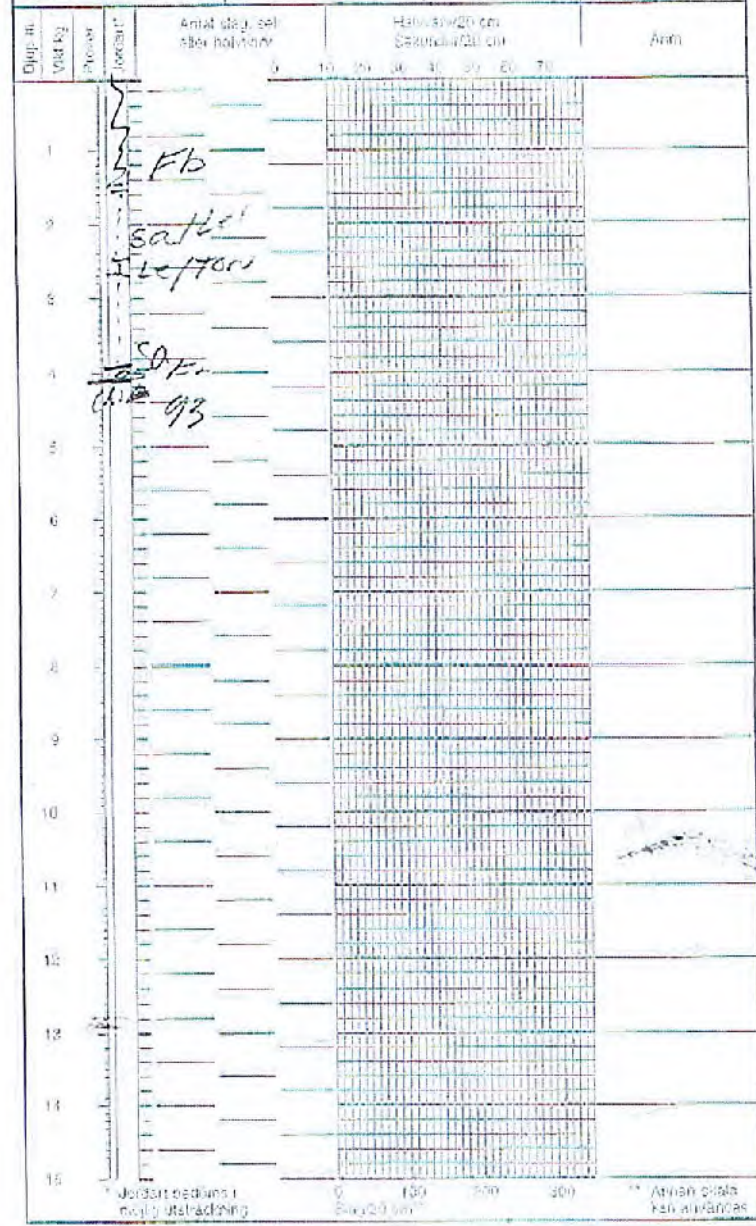 Djup m
Vikt kg
Prover
Jordart*
Antal slag, sek
eller halvvarv
Halvvarv/20 cm
Sekunder/20 cm
Anm
0 10 20 30 40 50 60 70
1
Fb
2
3
4
93
5
6
7
8
9
10
11
12
13
14
15
* Jordart bedöms i
möjlig utsträckning
0 100 200 300
Slag/20 cm**
** Annan skala
kan användas